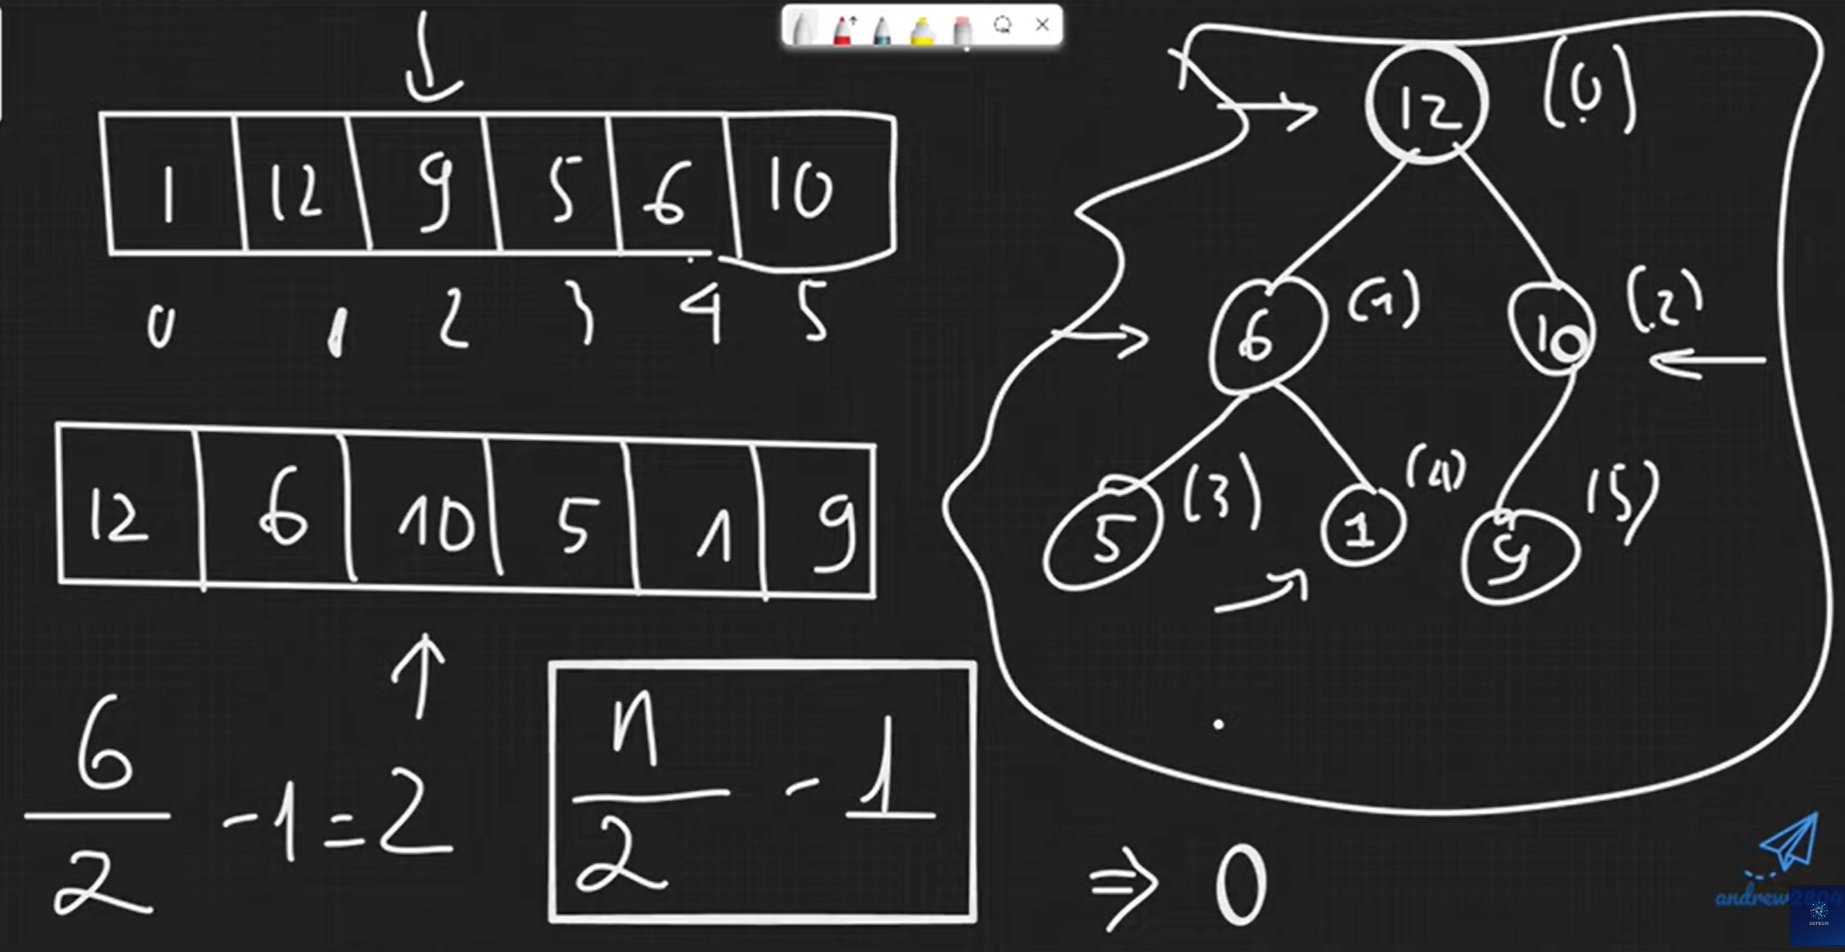 1 12 9 5 6 10
0 1 2 3 4 5
12 6 10 5 1 9
6
2
-1=2
n
2
- 1
12 (0)
6 (1) 10 (2)
5 (3) 1 (4) 9 (5)
⇒ 0
andrew2804